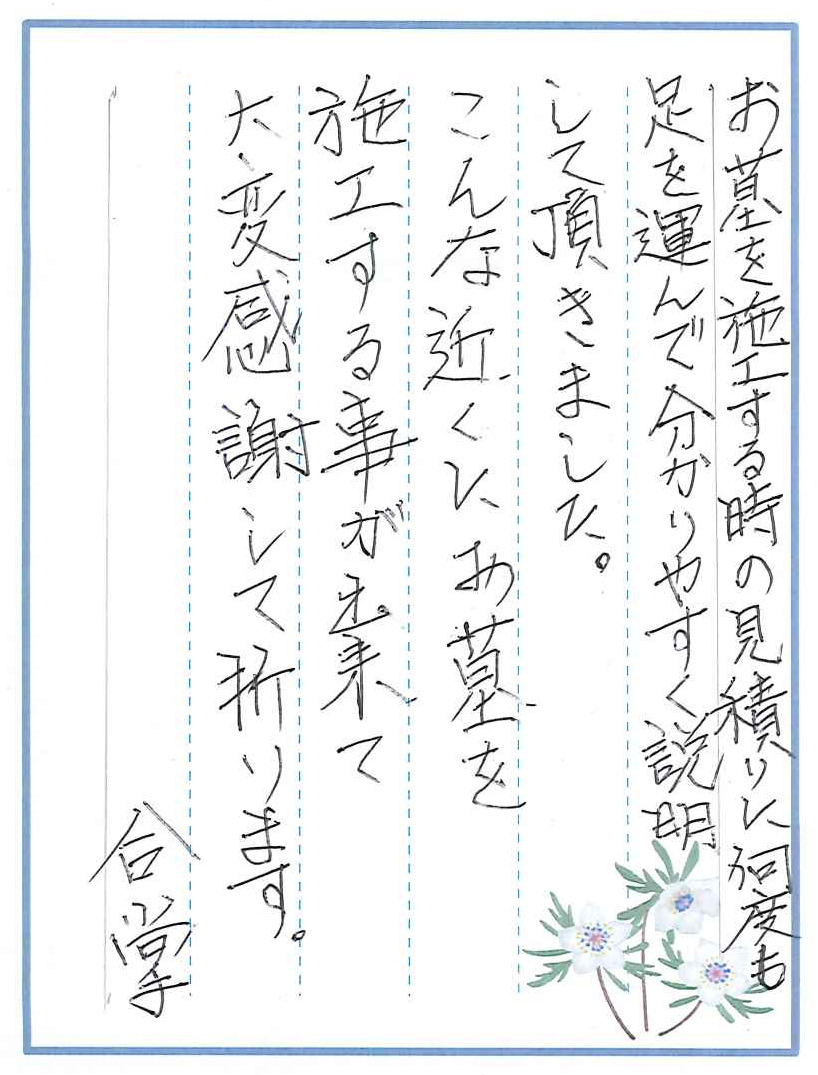 お墓を施工する時の見積りに何度も
足を運んで分かりやすく説明
して頂きました。
こんな近くにお墓を
施工する事が出来て
大変感謝して折ります。
合掌